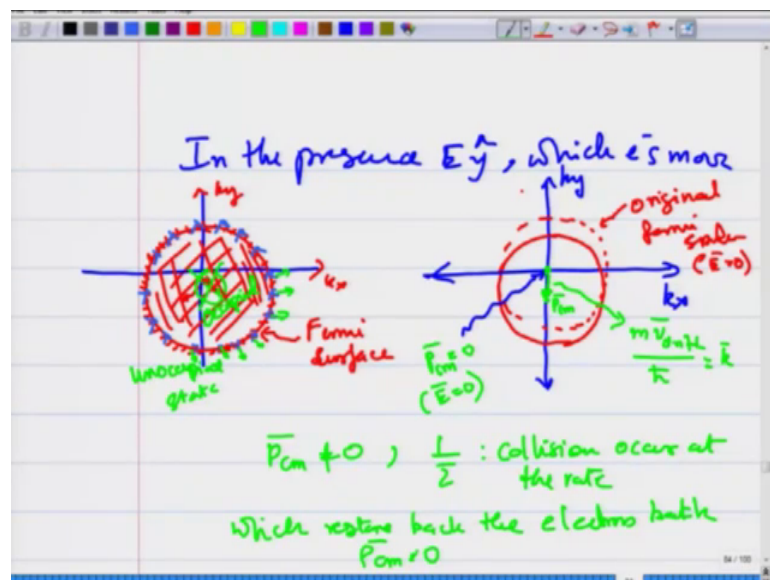 In the presence E ŷ, which e's move
ky
kx
occupied
Fermi
surface
Unoccupied
state
ky
original
fermi
sphere
(Ē=0)
kx
P̄cm
P̄cm=0
(Ē=0)
m v̄drift / ħ = k̄
P̄cm ≠ 0 , 1/τ : collision occur at
the rate
which restore back the electrons back
P̄cm=0
84 / 100